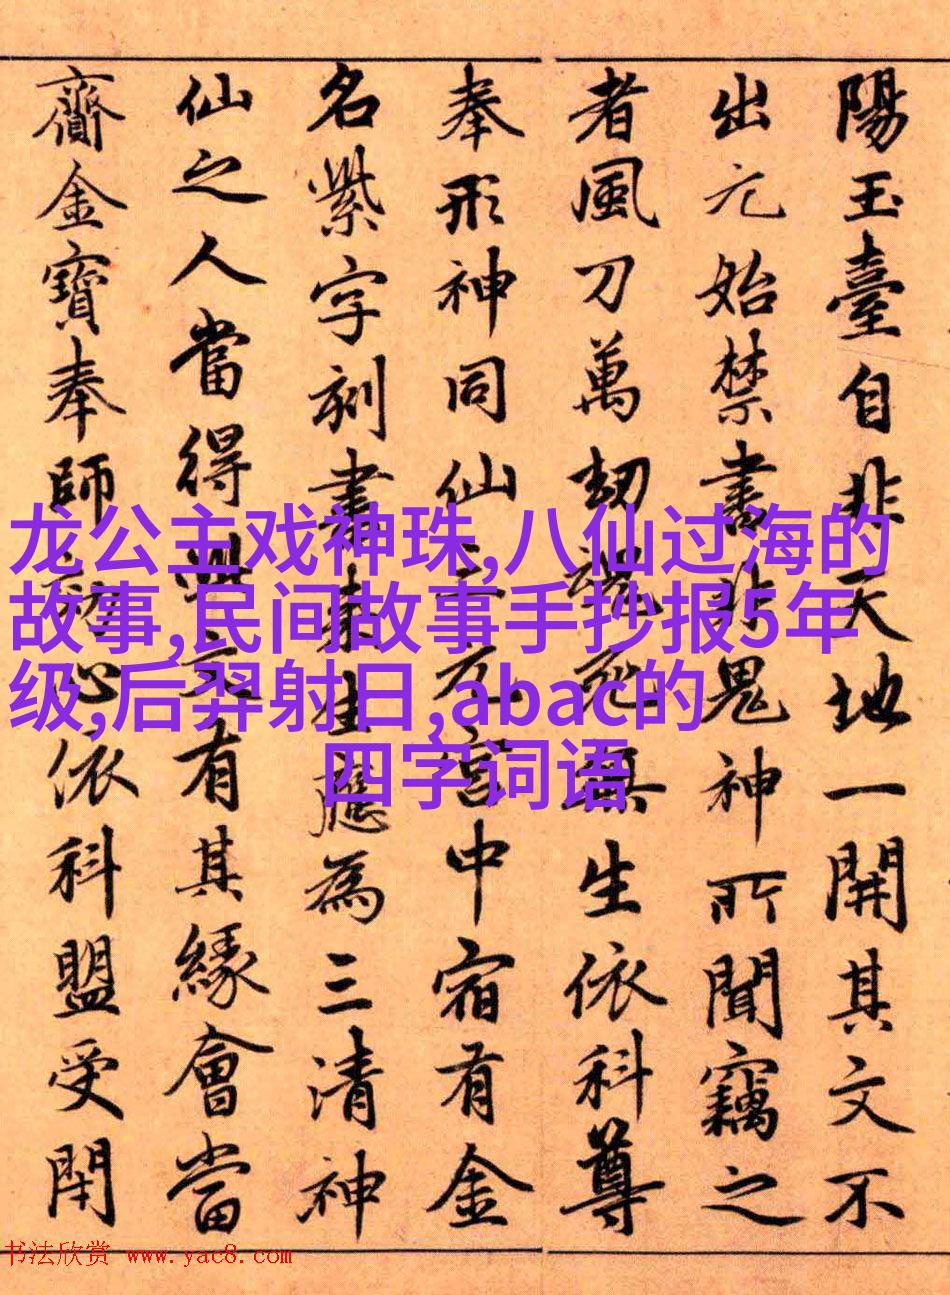 陽玉臺自非天地一開其文不
出元始禁書非鬼神所聞竊之
者風刀萬劫魂死無生依科尊
奉形神同仙上元宮中宿有金
名紫字刻書来生應為三清神
仙之人當得有其緣會當
齎金寶奉師心依科盟受閇
龙公主戏神珠,八仙过海的
故事,民间故事手抄报5年
级,后羿射日,abac的
四字词语
书法欣赏 www.yac8.com